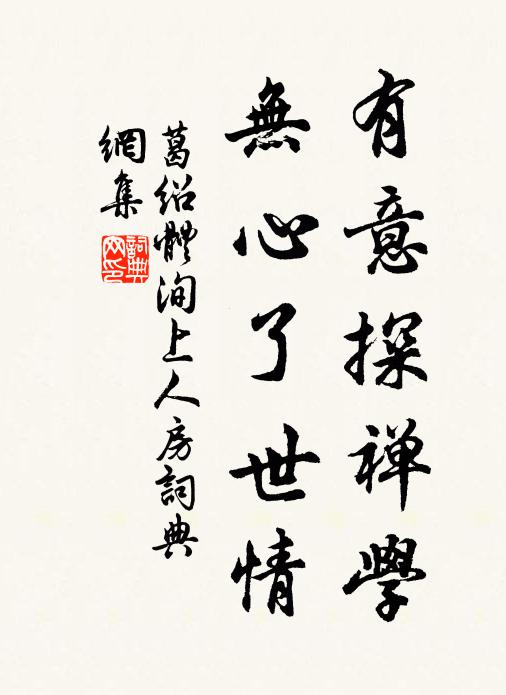 有意探禅學
無心了世情
葛紹體洵上人房詞典
網集
詞典网印